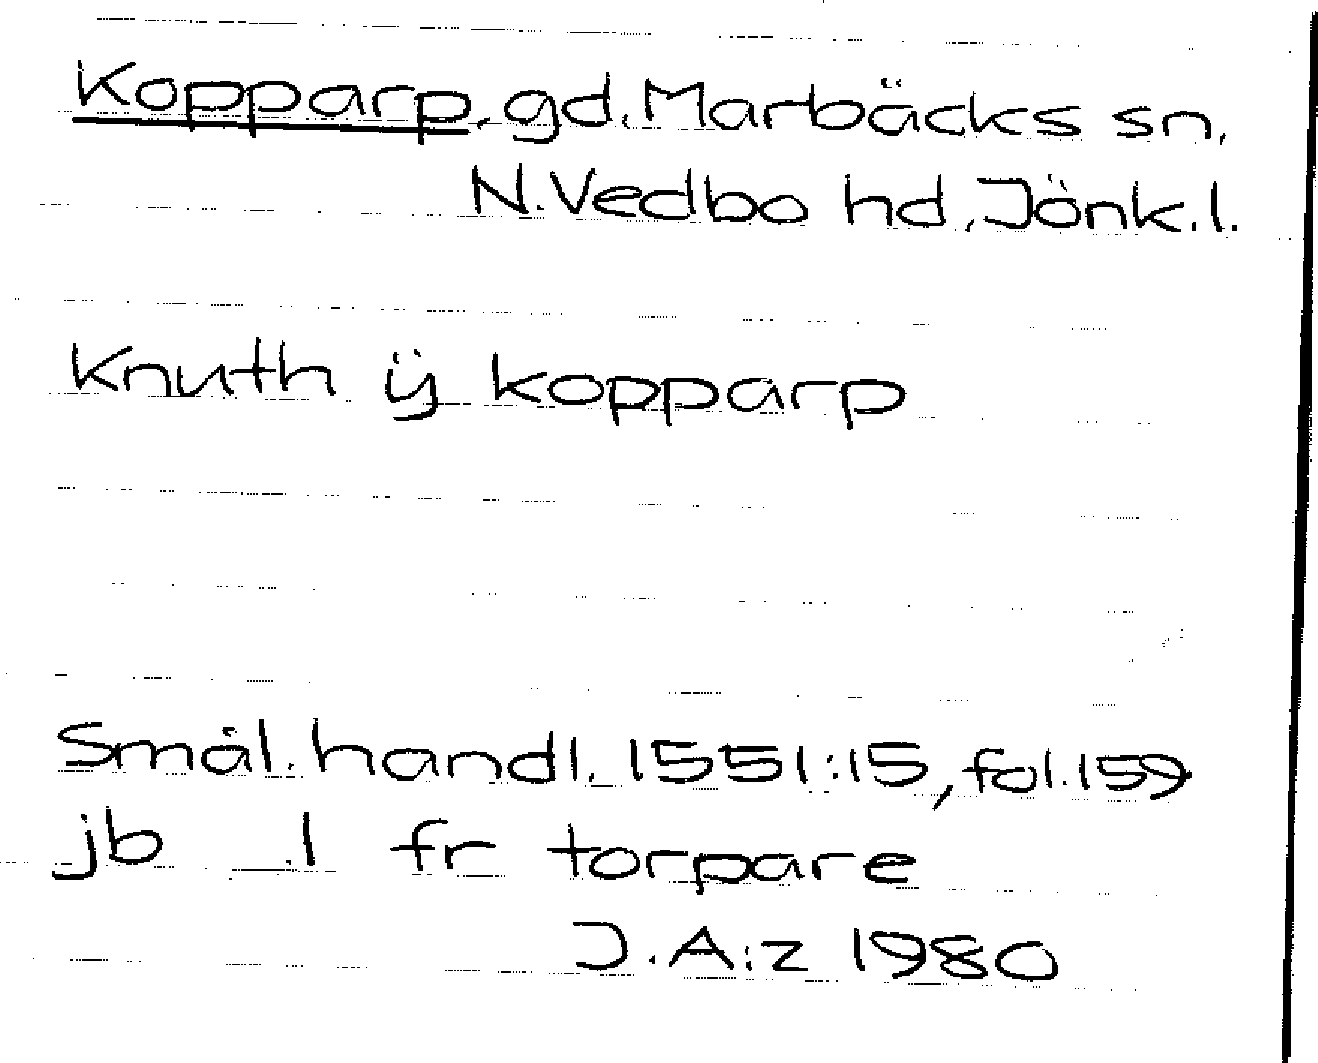 Kopparp, gd, Marbäcks sn,
N. Vedbo hd, Jönk. l.
Knuth ÿ kopparp
Smål. handl. 1551:15, fol. 159
jb 1 fr torpare
J.A:z 1980